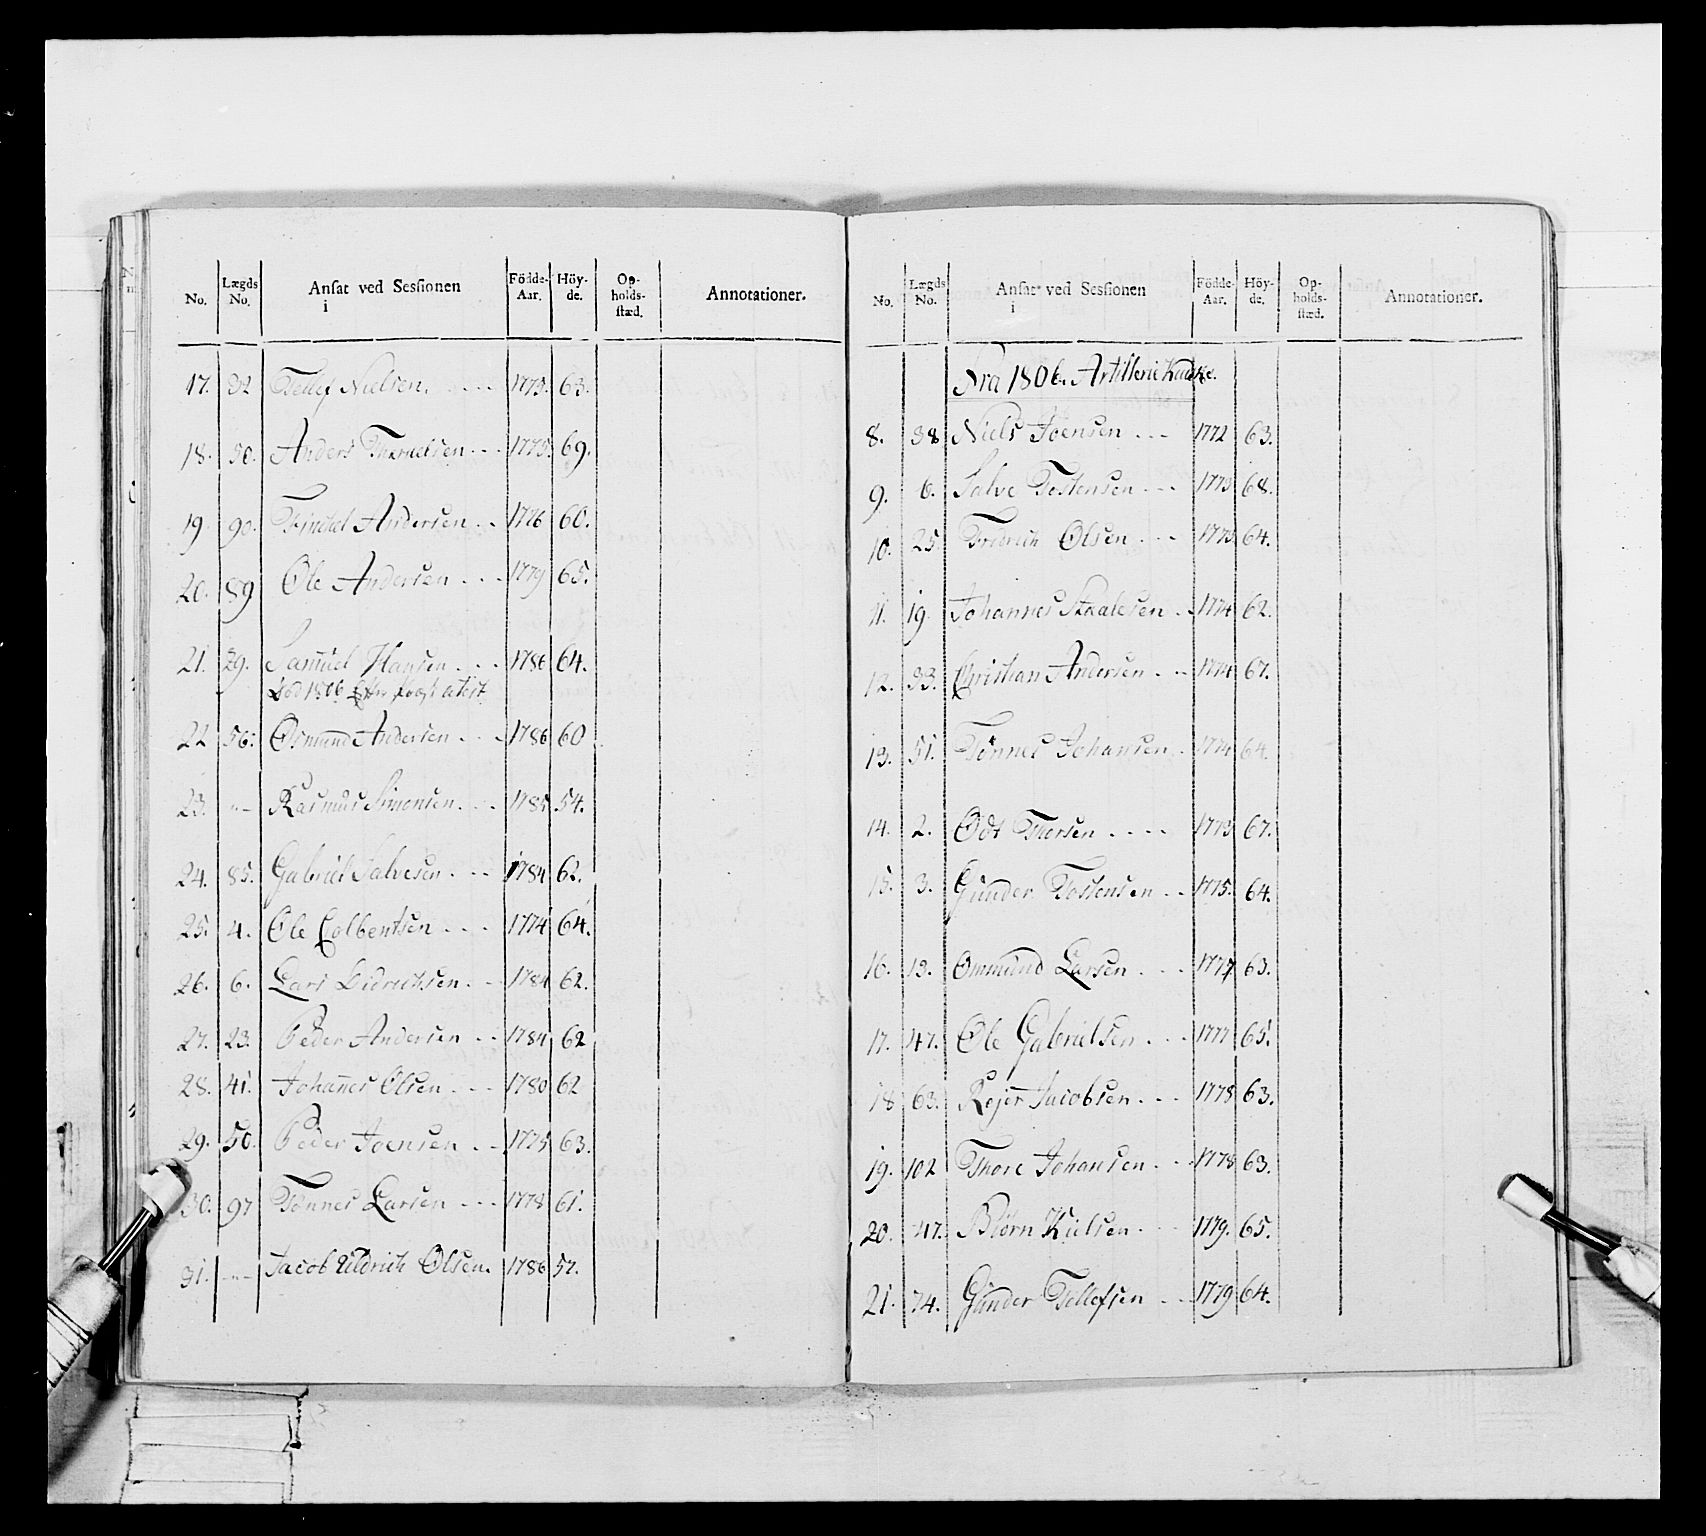 No. Lægds No. Ansat ved Sessionen i Födde-Aar. Höy-de. Op-holds-stæd. Annotationer.
17. 32 Tellef Nielsen. 1773. 63.
18. 50. Anders 1775. 69.
19. 90. Andersen 1776 60.
20. 89 Ole Andersen 1779 65.
21. 29. Samuel Hansen 1786 64.
død 1806 Efter Præst atest
22 56. Osmund Andersen 1786 60
23. -- Rasmus Simonsen. 1785 54.
24. 85. Gabriel Salvesen 1784 62.
25. 4. Ole Colbentsen 1774 64.
26. 6. Lars Didrichsen 1784 62.
27. 23. Peder Andersen 1784 62
28. 41. Johannes Olsen 1780 62
29. 50. Peder Joensen 1775 63.
30. 97 Tønnes Larsen 1778 61.
31. --- Jacob Uldrich Olsen. 1786 57.
No. Lægds No. Ansat ved Sessionen i Födde-Aar. Höy-de. Op-holds-stæd. Annotationer.
Fra 1806. Artillerie
8. 38 Niels Joensen 1772 63.
9. 6. Salve Tostensen 1773 68.
10. 25 Fridrich Olsen 1773 64.
11. 19 Johannes Staalesen 1774 62.
12. 33. Christian Andersen 1774 67.
13. 51. Tønnes Johansen 1774 64.
14. 2. Odt Thorsen 1773 67.
15. 3. Gunder Tostensen 1775. 64.
16. 13. Ommund Larsen 1777 63.
17. 47. Ole Gabrielsen 1777 65.
18 63. Rejer Jacobsen 1778 63.
19. 102 Thore Johansen 1778 63.
20. 47. Biørn Kielsen 1779. 65.
21. 74. Gunder Tellefsen 1779 64.